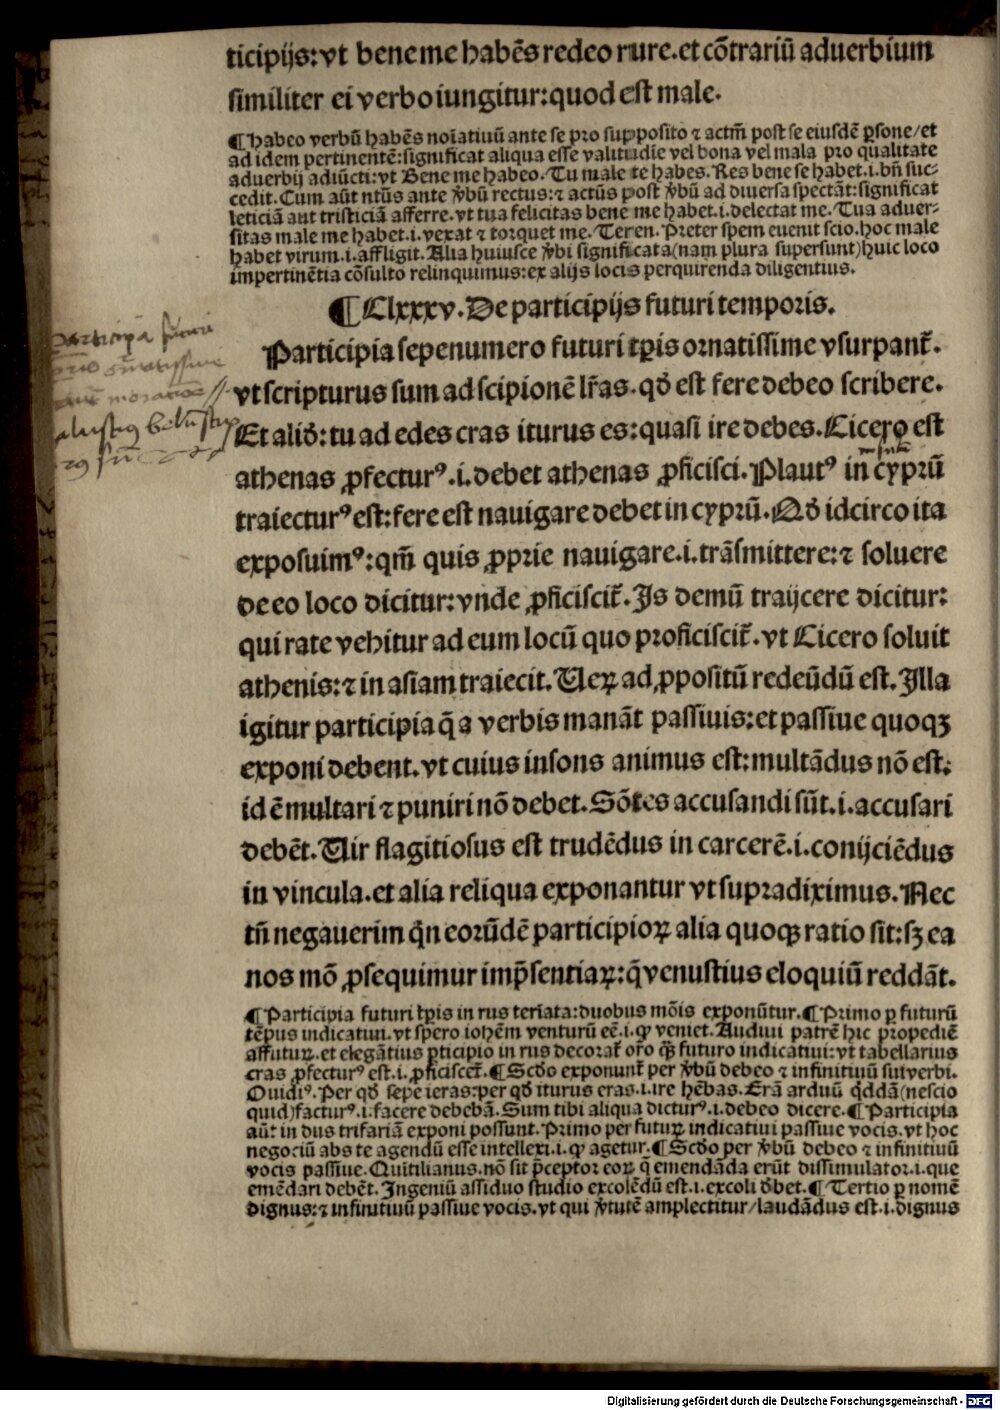 ticipijs:vt bene me habēs redeo rure.et cōtrariū aduerbium
similiter ei verbo iungitur:quod est male.
¶Habeo verbū habēs noīatiuū ante se pro supposito ⁊ actm̄ post se eiusdē ꝑsone/et
ad idem pertinentē:significat aliqua esse valitudie vel bona vel mala pro qualitate
aduerbij adiūcti:vt Bene me habeo.Tu male te habes.Res bene se habet.i.bn̄ suc⸗
cedit.Cum aūt ntūs ante v̓bū rectus:⁊ actūs post v̓bū ad diuersa spectāt:significat
leticiā aut tristiciā afferre.vt tua felicitas bene me habet.i.delectat me.Tua aduer⸗
sitas male me habet.i.vexat ⁊ torquet me.Teren.Preter spem euenit scio.hoc male
habet virum.i.affligit.Alia huiusce v̓bi significata(nam plura supersunt)huic loco
impertinētia cōsulto relinquimus:ex alijs locis perquirenda diligentius.
¶Clxxxv.De participijs futuri temporis.
Participia sepenumero futuri tꝑis ornatissime vsurpant᷑.
vt scripturus sum ad scipionē lr̄as.qd̓ est fere debeo scribere.
Et alid̓:tu ad edes cras iturus es:quasi ire debes.Cicero est
athenas ꝓfecturꝰ.i.debet athenas ꝓficisci.Plautꝰ in cyprū
traiecturꝰ est:fere est nauigare debet in cyprū.Qd̓ idcirco ita
exposuimꝰ:qm̄ quis ꝓprie nauigare.i.trāsmittere:⁊ soluere
de eo loco dicitur:vnde ꝓficiscit᷑.Is demū traijcere dicitur:
qui rate vehitur ad eum locū quo proficiscit᷑.vt Cicero soluit
athenis:⁊ in asiam traiecit.Ueꝝ ad ꝓpositū redeūdū est.Illa
igitur participia q̄ a verbis manāt passiuis:et passiue quoqꝫ
exponi debent.vt cuius insons animus est:multādus nō est.
id ē multari ⁊ puniri nō debet.Sōtes accusandi sūt.i.accusari
debēt.Uir flagitiosus est trudēdus in carcerē.i.conijciēdus
in vincula.et alia reliqua exponantur vt supradiximus.Nec
tn̄ negauerim q̄n eorūdē participioꝝ alia quoqꝫ ratio sit:sꝫ ea
nos mō ꝓsequimur imp̄sentiaꝝ:q̄ venustius eloquiū reddāt.
¶Participia futuri tꝑis in rus teriata:duobus mōis exponūtur.¶Primo ꝑ futurū
tēpus indicatiui.vt spero iohēm venturū eē.i.ꝙ veniet.Audiui patrē hic propediē
affuturꝝ.et elegātius ꝑticipio in rus decorat᷑ or̄o q̄ꝫ futuro indicatiui:vt tabellarius
cras ꝓfecturꝰ est.i.ꝓficiscet᷑.¶Scd̓o exponunt᷑ per v̓bū debeo ⁊ infinitiuū sui verbi.
Ouidiꝰ.Per qd̓ sepe ieras:per qd̓ iturus eras.i.ire hēbas.Erā arduū qddā(nescio
quid)facturꝰ.i.facere debebā.Sum tibi aliqua dicturꝰ.i.debeo dicere.¶Participia
aūt in dus trifariā exponi possunt.Primo per futuꝝ indicatiui passiue vocis.vt hoc
negociū abs te agendū esse intellexi.i.ꝙ agetur.¶Scd̓o per v̓bū debeo ⁊ infinitiuū
vocis passiue.Quītilianus.nō sit p̄ceptor eoꝝ q̄ emendāda erūt dissimulator.i.que
emēdari debēt.Ingeniū assiduo studio excolēdū est.i.excoli d̓bet.¶Tertio ꝑ nomē
dignus:⁊ infinitiuū passiue vocis.vt qui v̓tutē amplectitur/laudādus est.i.dignus
Digitalisierung gefördert durch die Deutsche Forschungsgemeinschaft - DFG